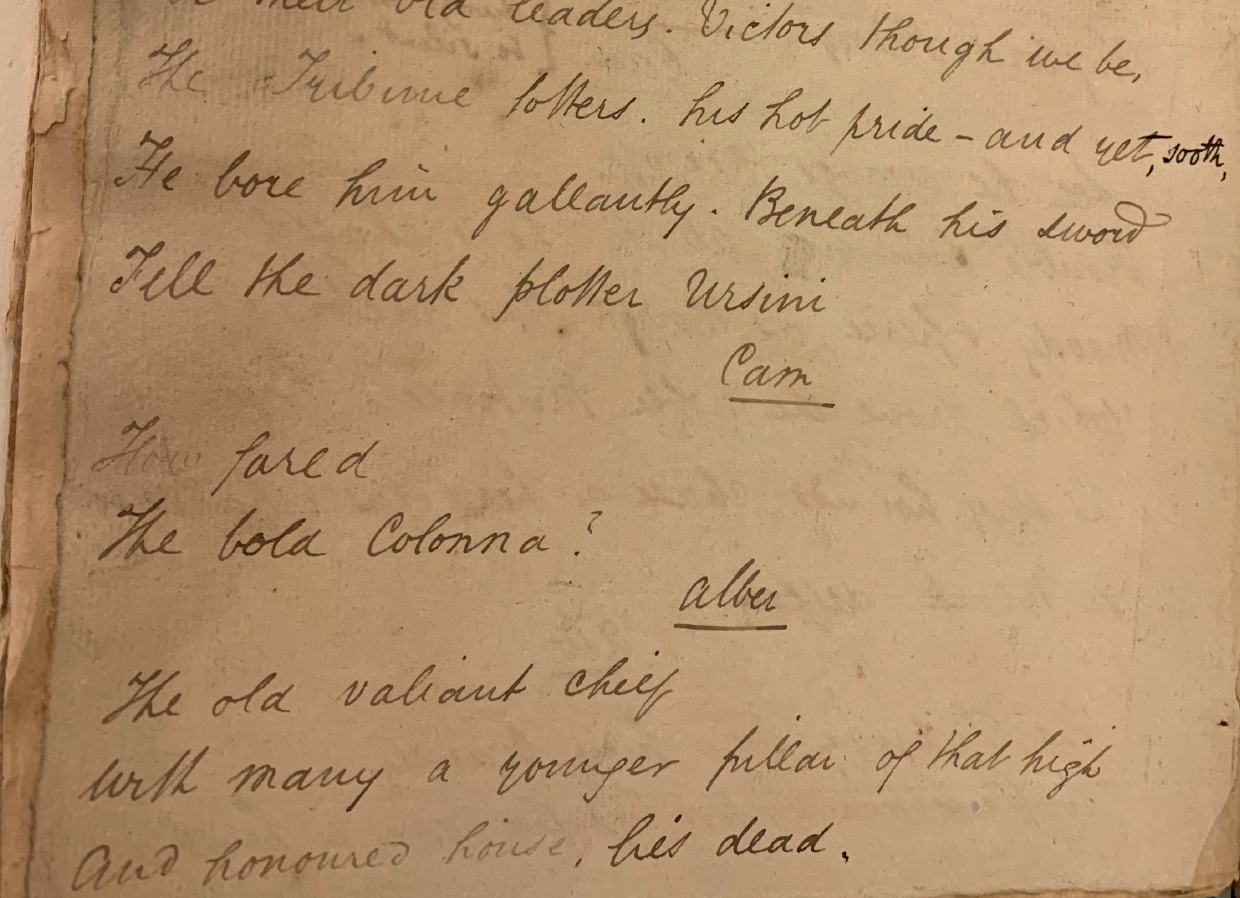 their old leaders. Victors though we be,
The Tribune totters. his hot pride – and yet, sooth,
He bore him gallantly. Beneath his sword
Fell the dark plotter Ursini
Cam
How fared
The bold Colonna?
Alber
The old valiant chief
With many a younger pillar of that high
And honoured house, lies dead.